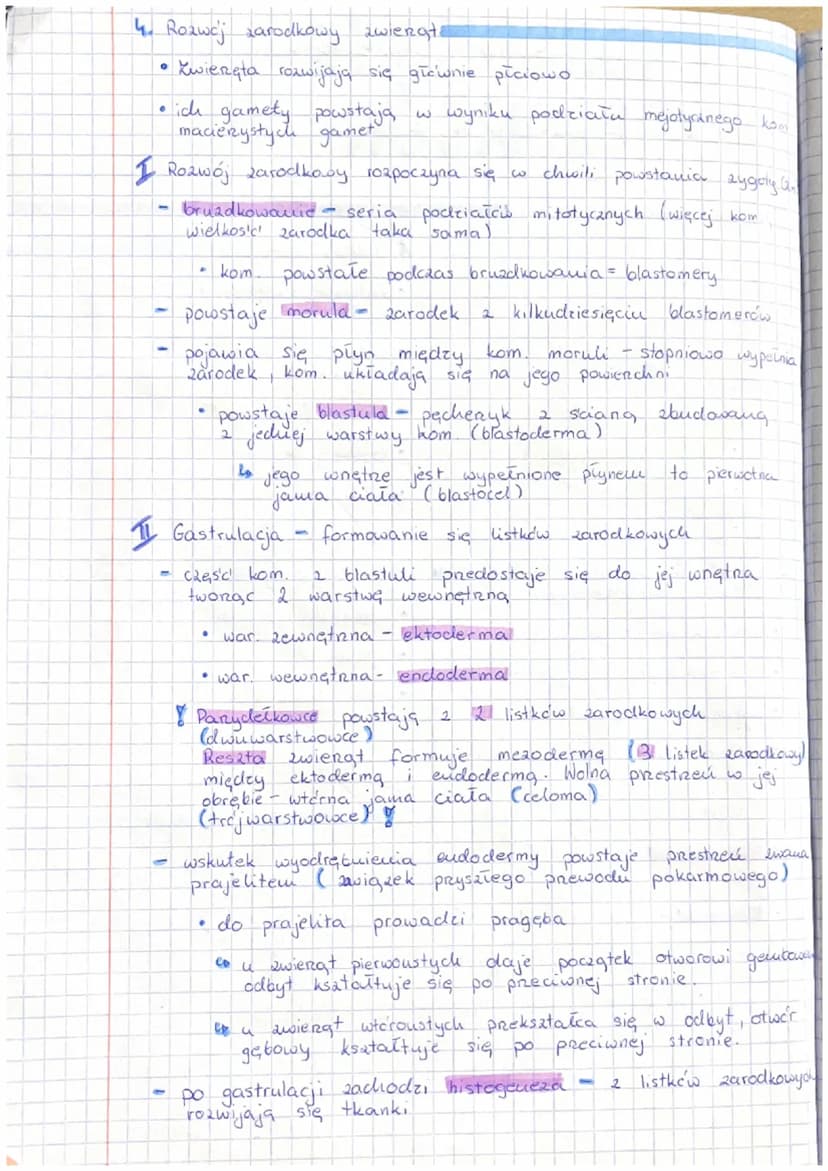 4. Rozwój zarodkowy zwierząt
• Zwierzęta rozwijają się głównie płciowo
• ich gamety powstają w wyniku podziału mejotycznego kom
macierzystych gamet
I Rozwój zarodkowy rozpoczyna się w chwili powstania zygoty
- bruzdkowanie - seria podziałów mitotycznych (więcej kom
wielkość zarodka taka sama)
• kom. powstałe podczas bruzdkowania = blastomery
- powstaje morula - zarodek z kilkudziesięciu blastomerów
- pojawia się płyn między kom. moruli - stopniowo wypełnia
zarodek, kom. układają się na jego powierzchni
• powstaje blastula - pęcherzyk z ścianą zbudowaną
z jednej warstwy kom. (blastoderma)
↳ jego wnętrze jest wypełnione płynem to pierwotna
jama ciała (blastocel)
II Gastrulacja - formowanie się listków zarodkowych
- część kom. z blastuli przedostaje się do jej wnętrza
tworząc 2 warstwę wewnętrzną
• war. zewnętrzna - ektoderma
• war. wewnętrzna - endoderma
! Parzydełkowce powstają z 2 listków zarodkowych
(dwuwarstwowce)
Reszta zwierząt formuje mezodermę (3 listek zarodkowy)
między ektodermą i endodermą. Wolna przestrzeń w jej
obrębie - wtórna jama ciała (celoma)
(trójwarstwowce) !
- wskutek wyodrębnienia endodermy powstaje przestrzeń zwana
prajelitem (zawiązek przyszłego przewodu pokarmowego)
• do prajelita prowadzi pragęba
↳ u zwierząt pierwoustych daje początek otworowi
odbyt kształtuje się po przeciwnej stronie.
↳ u zwierząt wtóroustych przekształca się w odbyt, otwór
gębowy kształtuje się po przeciwnej stronie.
- po gastrulacji zachodzi histogeneza - z listków zarodkowych
rozwijają się tkanki